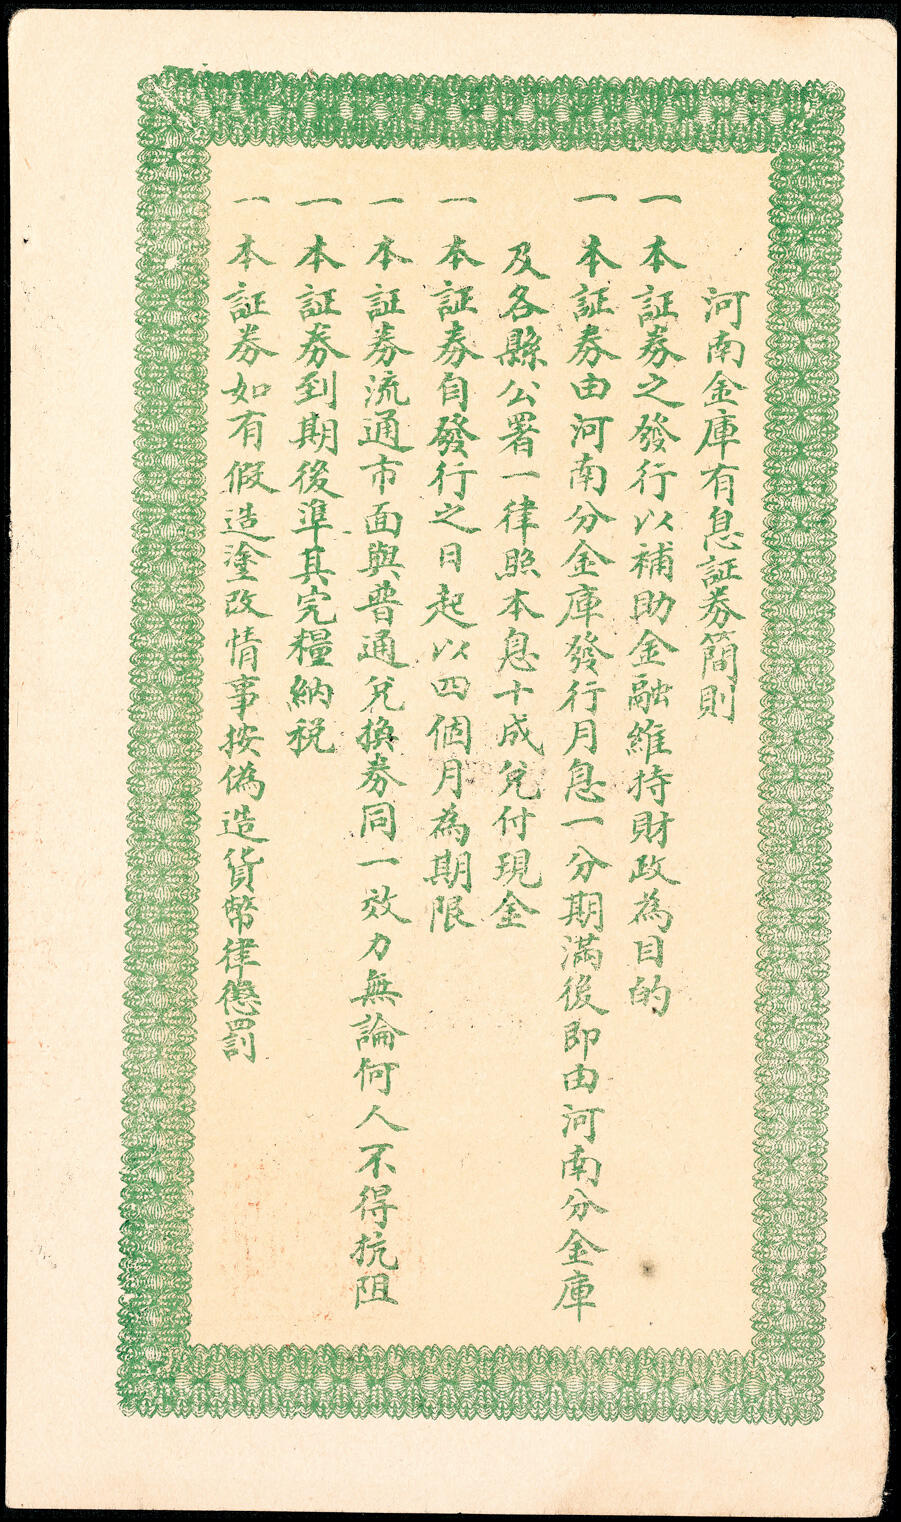 河南金庫有息証券簡則
一本証券之發行以補助金融維持財政為目的
一本証券由河南分金庫發行月息一分期滿後即由河南分金庫
及各縣公署一律照本息十成兌付現金
一本証券自發行之日起以四個月為期限
一本証券流通市面與普通兌換券同一效力無論何人不得抗阻
一本証券到期後準其完糧納税
一本証券如有假造塗改情事按偽造貨幣律懲罰